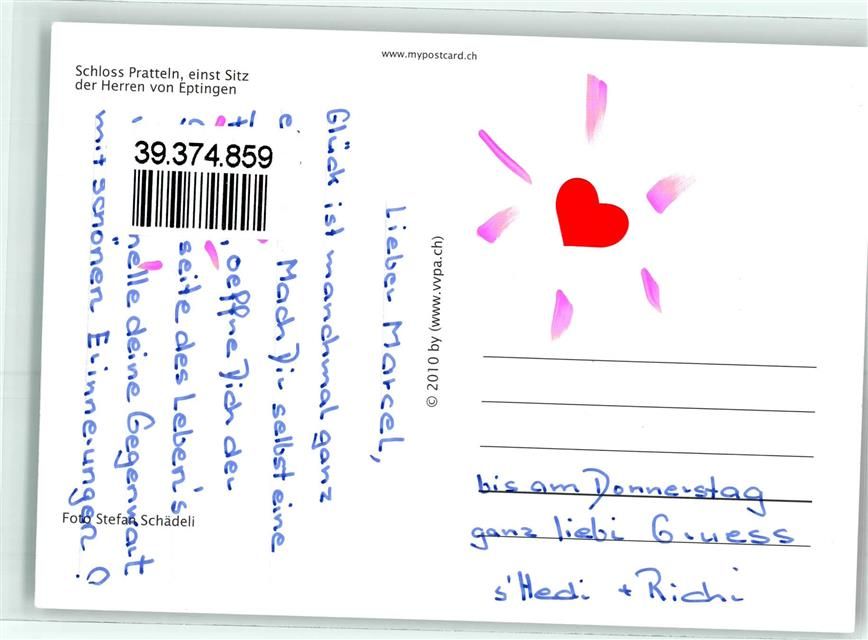 www.mypostcard.ch
Schloss Pratteln, einst Sitz
der Herren von Eptingen
39.374.859
Lieber Marcel,
Glück ist manchmal ganz
Mach Dir selbst eine
oeffne Dich der
seite des Leben's
deine Gegenwart
mit schönen Erinnerungen!
© 2010 by (www.vvpa.ch)
Foto Stefan Schädeli
bis am Donnerstag
ganz liebi Gruess
s'Hedi + Richi